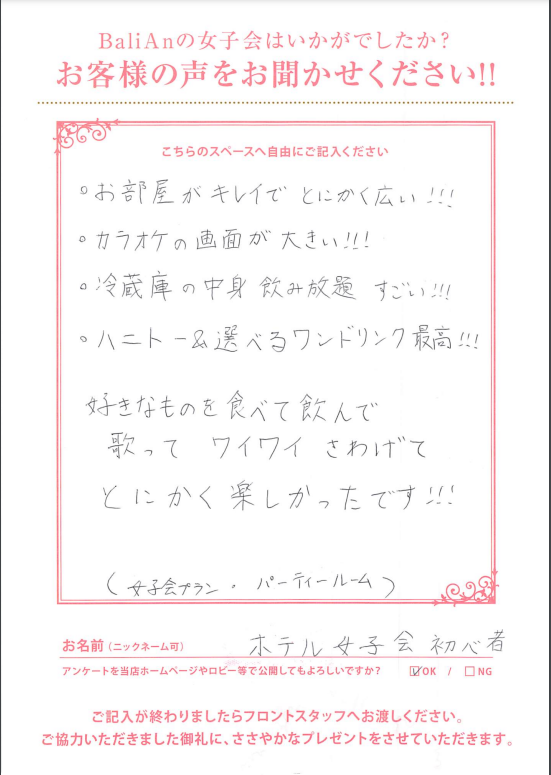 BaliAnの女子会はいかがでしたか?
お客様の声をお聞かせください!!
こちらのスペースへ自由にご記入ください
○お部屋がキレイで とにかく広い!!!
○カラオケの画面が 大きい!!!
○冷蔵庫の中身 飲み放題 すごい!!!
○ハニトー&選べるワンドリンク最高!!!
好きなものを食べて飲んで
歌って ワイワイ さわげて
とにかく楽しかったです!!!
(女子会プラン・パーティールーム)
お名前(ニックネーム可) ホテル女子会初心者
アンケートを当店ホームページやロビー等で公開してもよろしいですか? ☑OK / □NG
ご記入が終わりましたらフロントスタッフへお渡しください。
ご協力いただきました御礼に、ささやかなプレゼントをさせていただきます。